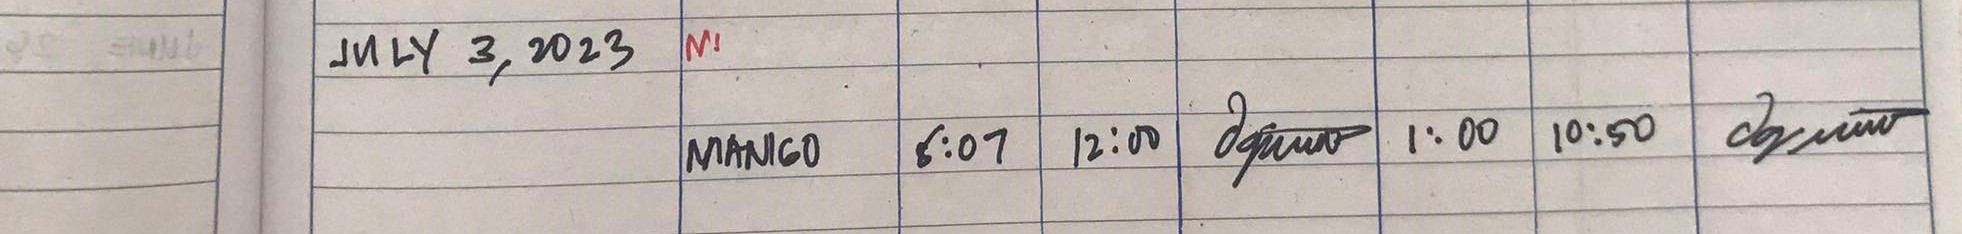 JULY 3, 2023 M
MANIGO 6:07 12:00 1:00 10:50